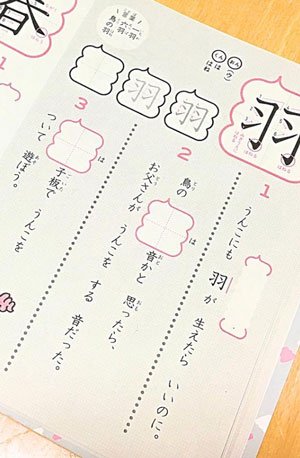 羽
おん (ウ)
くん は はね
一羽
六羽
鳥の羽
羽 羽
1
うんこにも 羽が 生えたら いいのに。
2
鳥の は 音かと 思ったら、
お父さんが うんこを する 音だった。
3
は 子板で うんこを
ついて 遊ぼう。
1